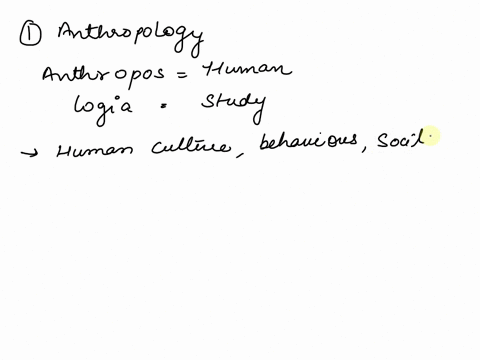 ① Anthropology
Anthropos = Human
logia = Study
→ Human culture, behaviours, Socit